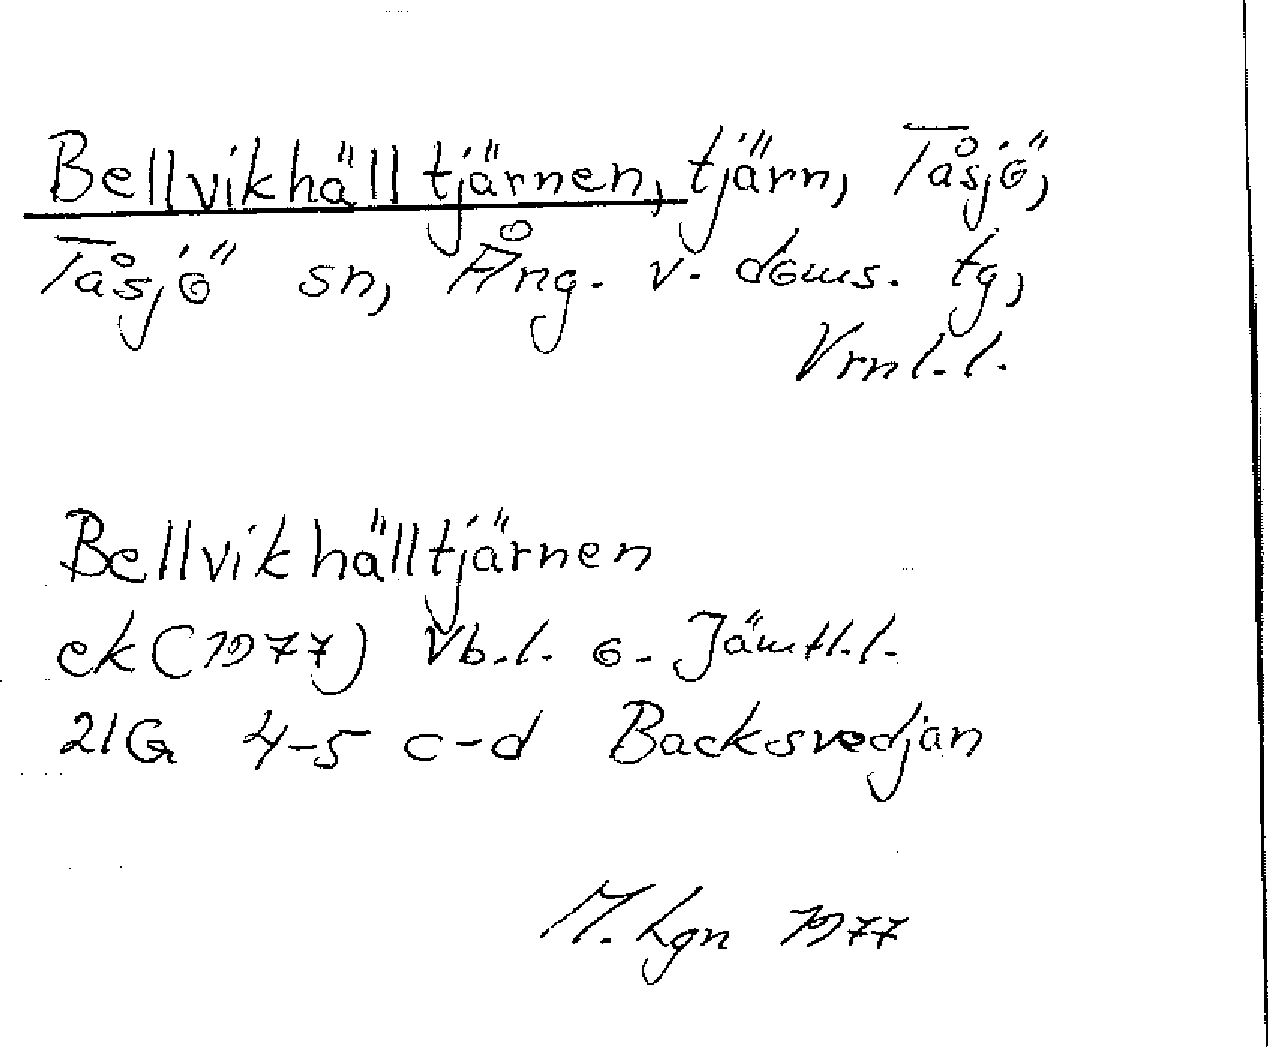 Bellvikhälltjärnen, tjärn, Tåsjö,
Tåsjö sn, Ång. v. doms. tg,
Vrnl.l.
Bellvikhälltjärnen
ek (1977) Vb.l. o. Jämtl.l.
21G 4-5 c-d Backsvedjan
M. Lgn 1977